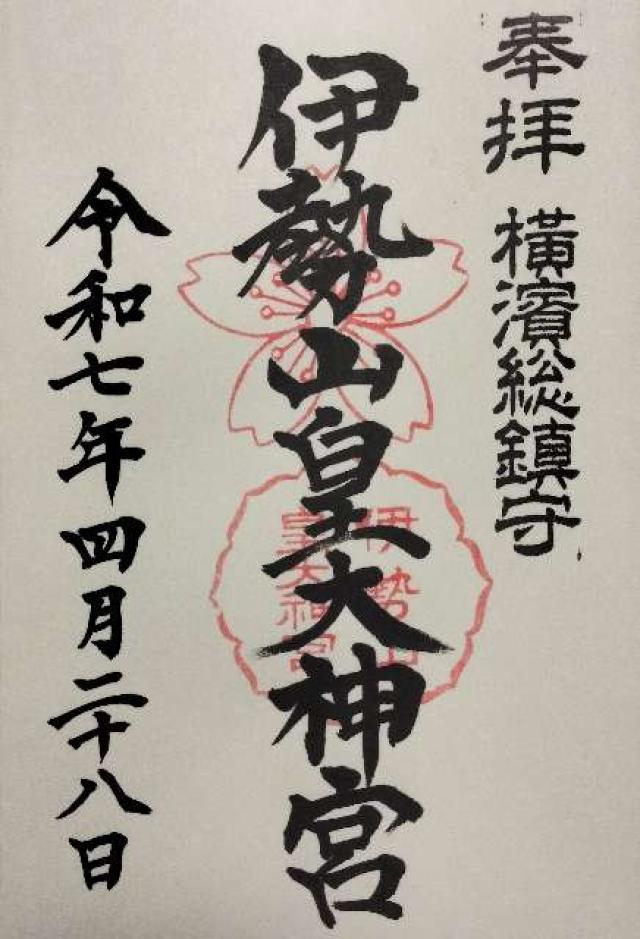 奉拝 横濱総鎮守
伊勢山皇大神宮
伊勢山
皇大神宮
令和七年四月二十八日